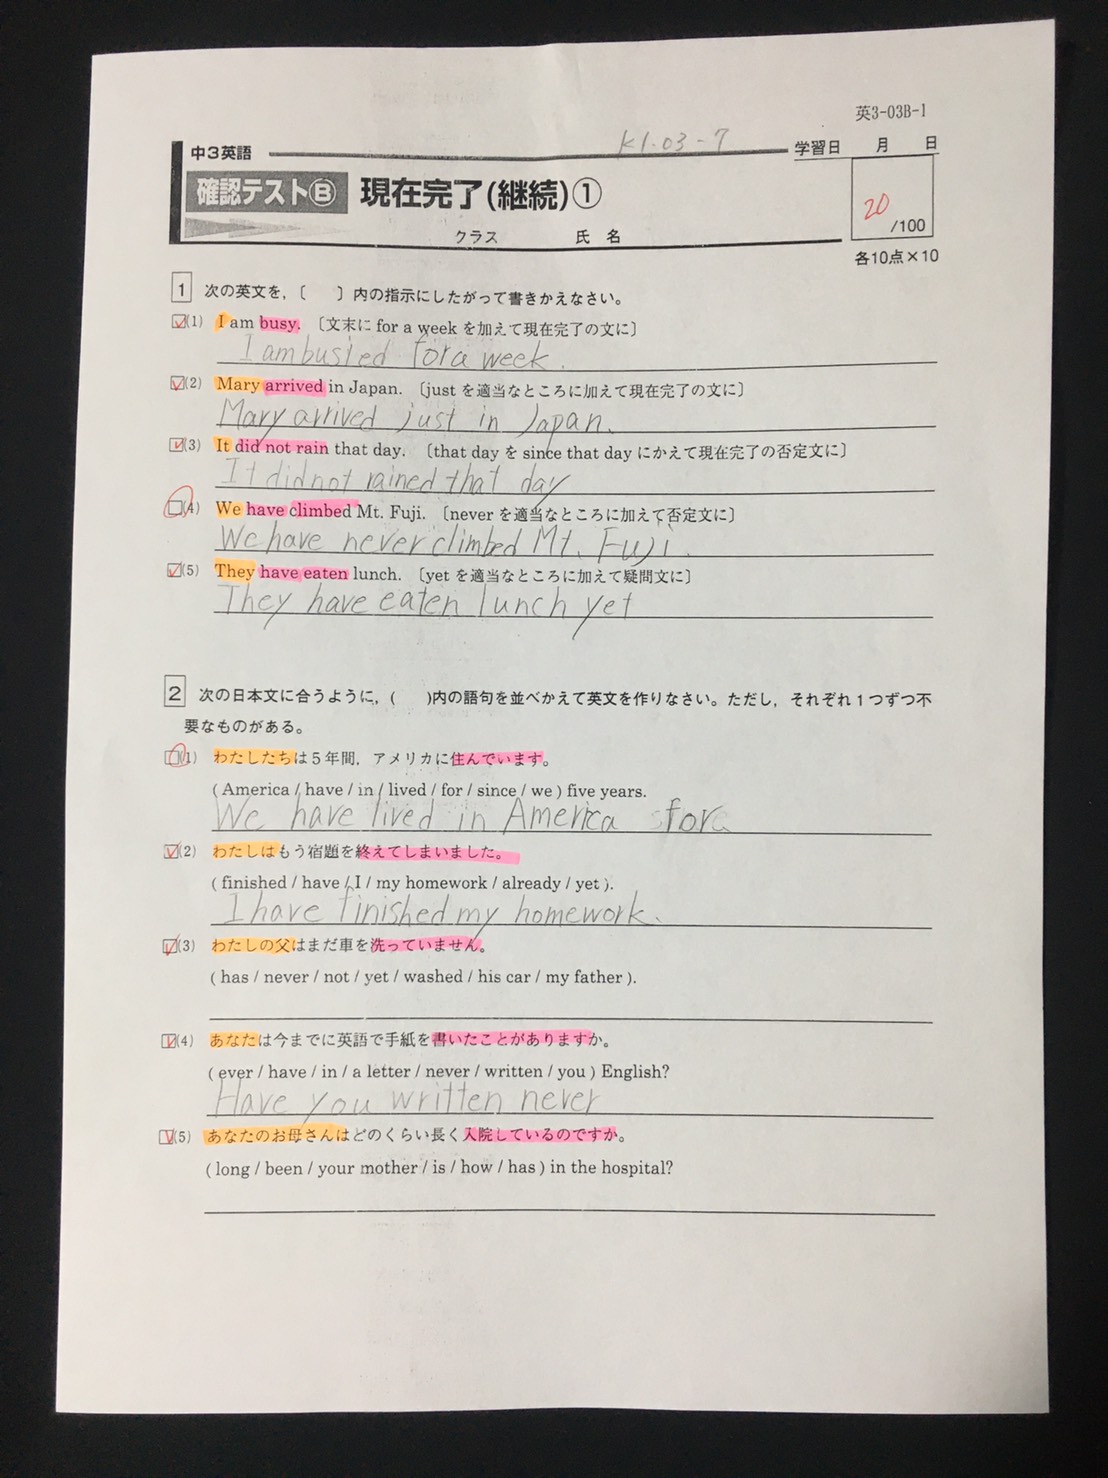 英3-03B-1
K1.03-7
中3英語
学習日 月 日
確認テストⒷ 現在完了(継続)①
20
/100
クラス 氏 名
各10点×10
1 次の英文を,〔 〕内の指示にしたがって書きかえなさい。
(1) I am busy. 〔文末に for a week を加えて現在完了の文に〕
I am busied for a week.
(2) Mary arrived in Japan. 〔just を適当なところに加えて現在完了の文に〕
Mary arrived just in Japan.
(3) It did not rain that day. 〔that day を since that day にかえて現在完了の否定文に〕
It did not rained that day
(4) We have climbed Mt. Fuji. 〔never を適当なところに加えて否定文に〕
We have never climbed Mt. Fuji.
(5) They have eaten lunch. 〔yet を適当なところに加えて疑問文に〕
They have eaten lunch yet
2 次の日本文に合うように,( )内の語句を並べかえて英文を作りなさい。ただし,それぞれ1つずつ不
要なものがある。
(1) わたしたちは5年間,アメリカに住んでいます。
( America / have / in / lived / for / since / we ) five years.
We have lived in America for
(2) わたしはもう宿題を終えてしまいました。
( finished / have / I / my homework / already / yet ).
I have finished my homework.
(3) わたしの父はまだ車を洗っていません。
( has / never / not / yet / washed / his car / my father ).
(4) あなたは今までに英語で手紙を書いたことがありますか。
( ever / have / in / a letter / never / written / you ) English?
Have you written never
(5) あなたのお母さんはどのくらい長く入院しているのですか。
( long / been / your mother / is / how / has ) in the hospital?